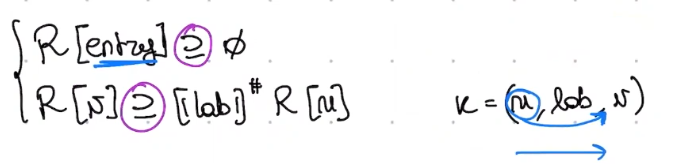 R [entry] ⊇ ∅
R [v] ⊇ [[lab]]# R [u] k = (u, lab, v)